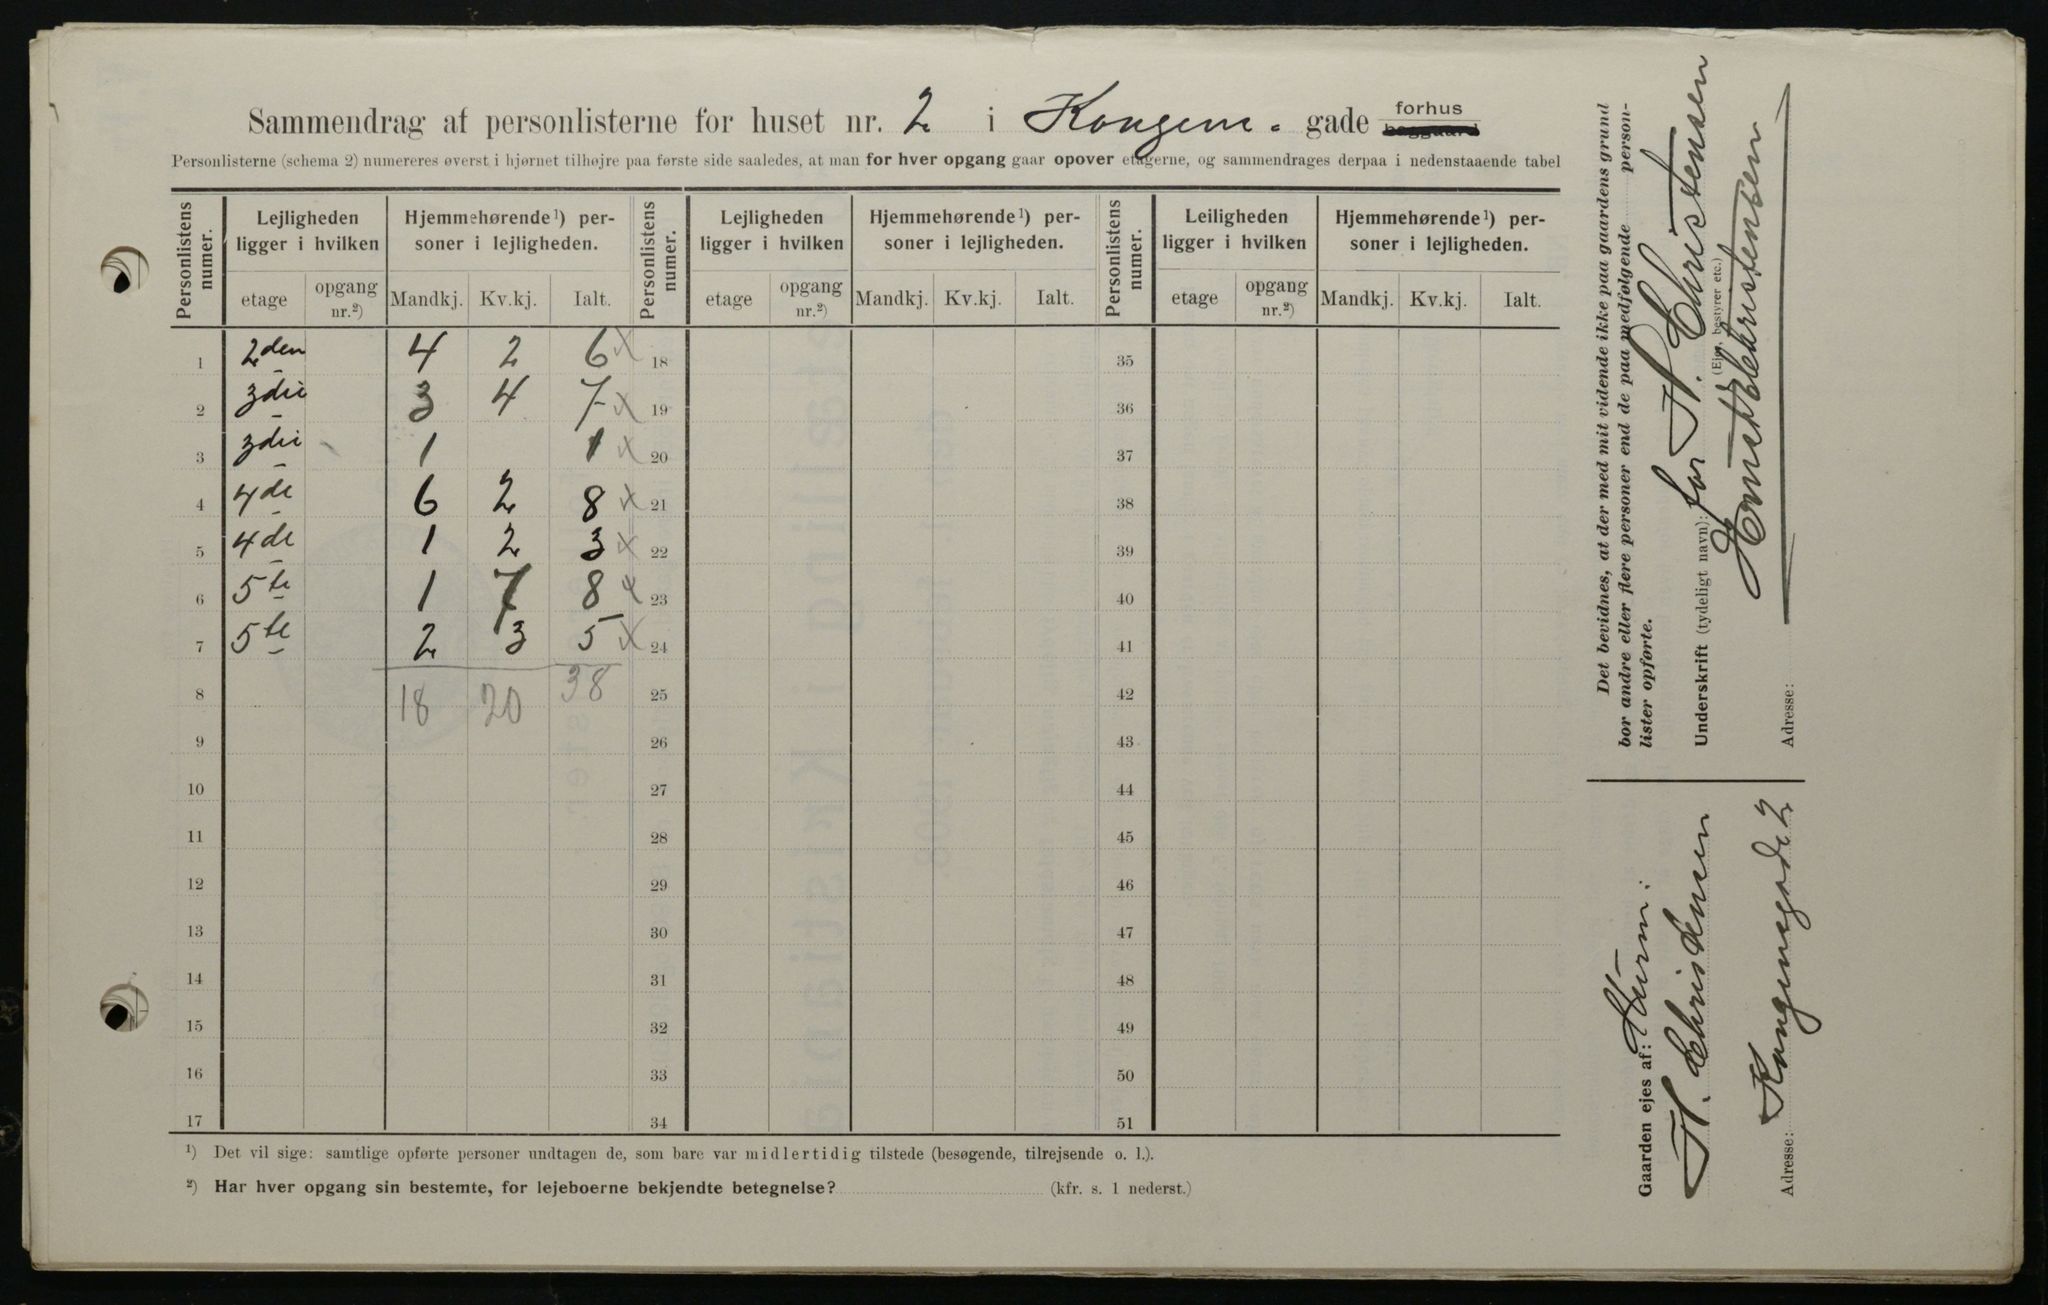 Sammendrag af personlisterne for huset nr. 2 i Kongens gade forhus baggaard
Personlisterne (schema 2) numereres øverst i hjørnet tilhøjre paa første side saaledes, at man for hver opgang gaar opover etagerne, og sammendrages derpaa i nedenstaaende tabel
Personlistens numer. Lejligheden ligger i hvilken Hjemmehørende ¹) personer i lejligheden. Personlistens numer. Lejligheden ligger i hvilken Hjemmehørende ¹) personer i lejligheden. Personlistens numer. Leiligheden ligger i hvilken Hjemmehørende ¹) personer i lejligheden.
etage opgang nr.²) Mandkj. Kv.kj. Ialt. etage opgang nr.²) Mandkj. Kv.kj. Ialt. etage opgang nr.²) Mandkj. Kv.kj. Ialt.
1 2den 4 2 6 x 18 35
2 3die 3 4 7 x 19 36
3 3die 1 1 x 20 37
4 4de 6 2 8 x 21 38
5 4de 1 2 3 x 22 39
6 5te 1 7 8 x 23 40
7 5te 2 3 5 x 24 41
8 18 20 38 25 42
9 26 43
10 27 44
11 28 45
12 29 46
13 30 47
14 31 48
15 32 49
16 33 50
17 34 51
¹) Det vil sige: samtlige opførte personer undtagen de, som bare var midlertidig tilstede (besøgende, tilrejsende o. l.).
²) Har hver opgang sin bestemte, for lejeboerne bekjendte betegnelse? (kfr. s. 1 nederst.)
Det bevidnes, at der med mit vidende ikke paa gaardens grund
bor andre eller flere personer end de paa medfølgende person-
lister opførte.
Underskrift (tydeligt navn): for H. Christensen
(Ejer, bestyrer etc.)
Christensen
Adresse:
Gaarden ejes af: Firm:
H. Christensen
Adresse: Kongensgade 2